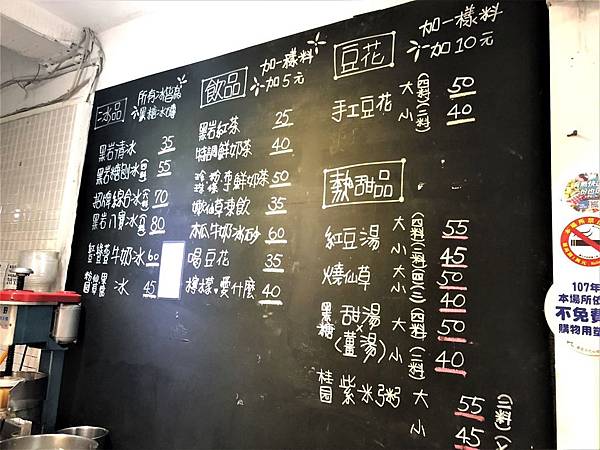 冰品
所有冰皆為
黑糖冰磚
黑岩清冰 35
黑岩糖刨冰 55
招牌綜合冰 70
黑岩八寶冰 80
牛奶冰 60
冰 45
飲品
加一樣料
加5元
黑岩紅茶 25
特調鮮奶茶 40
珍珠 鮮奶茶 50
嫩仙草凍飲 35
木瓜牛奶冰砂 60
喝豆花 35
檸檬。愛什麼 40
豆花
加一樣料
加10元
手工豆花 大(四料) 50
小(三料) 40
熱甜品
紅豆湯 大(四料) 55
小(三料) 45
燒仙草 大(四料) 50
小(三料) 40
黑糖 甜湯 大(四料) 50
(薑湯) 小(三料) 40
桂園 紫米粥 大 55 (三料)
小 45
107年
本場所依
不免費
購物用塑